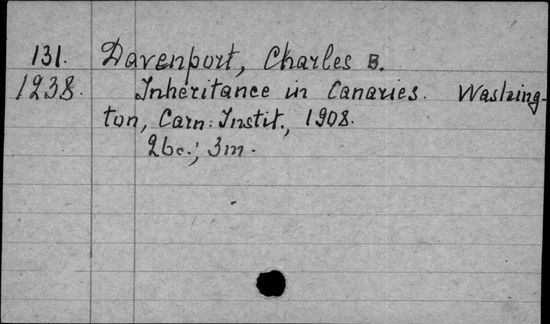 131. Davenport, Charles B.
1238. Inheritance in Canaries. Washing-
ton, Carn. Instit., 1908.
26c.; 3m.